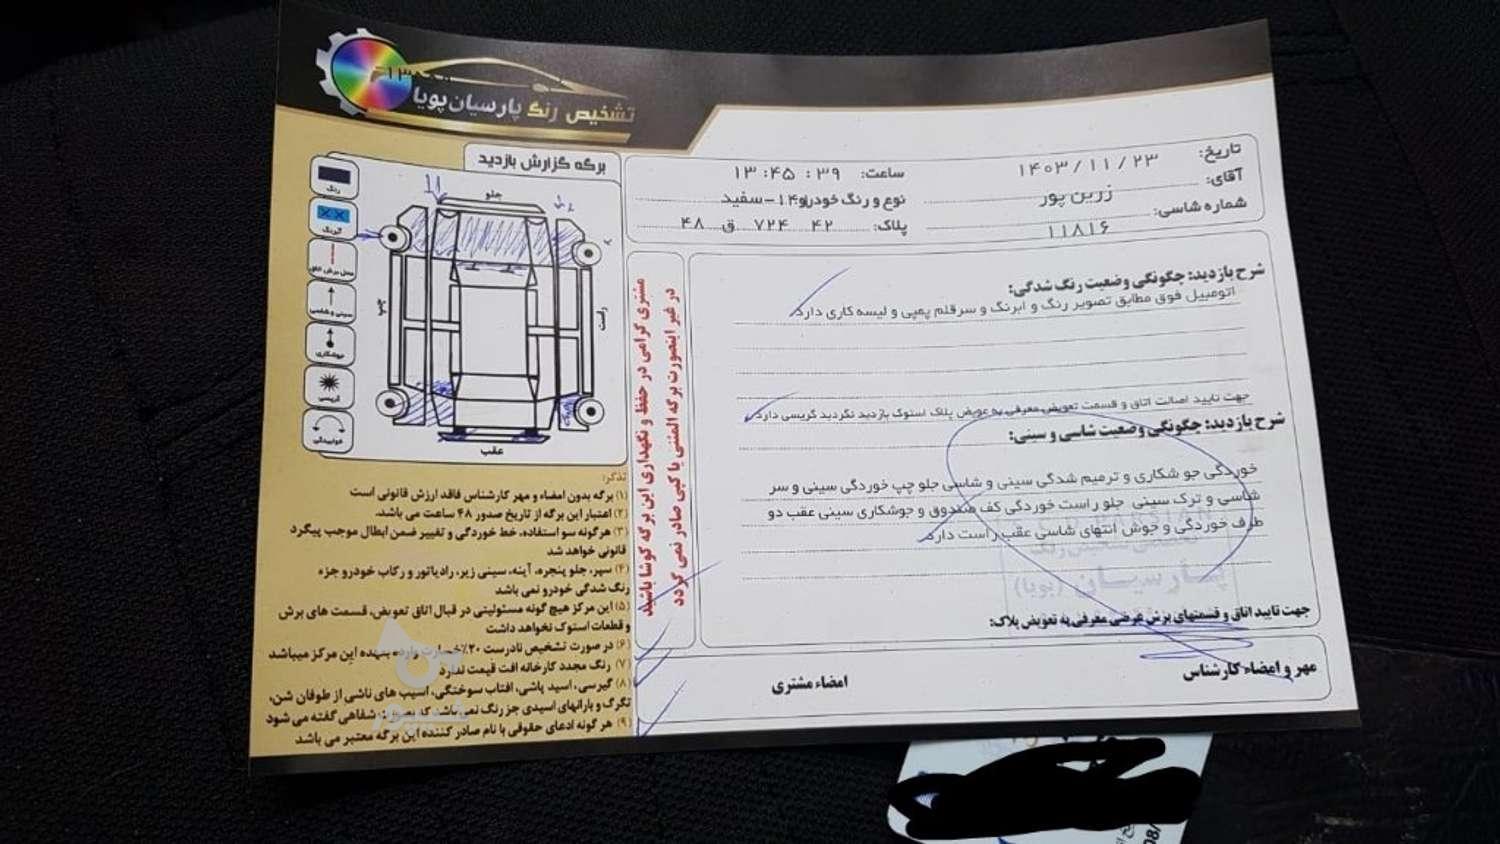 تشخیص رنگ پارسیان پویا
برگه گزارش بازدید
تاریخ: ۱۴۰۳/۱۱/۲۳
ساعت: ۱۳:۴۵:۳۹
آقای: زرین پور
نوع و رنگ خودرو: ۱۴۱-سفید
شماره شاسی: ۱۱۸۱۶
پلاک: ۴۲ ۷۲۴ ق ۴۸
رنگ
آبرنگ
محل برش اتاق
سینی و شاسی
جوشکاری
گریسی
خوابیدگی
جلو
چپ
راست
عقب
مشتری گرامی در حفظ و نگهداری این برگه کوشا باشید
در غیر اینصورت برگه المثنی یا کپی صادر نمی گردد
شرح بازدید: چگونگی وضعیت رنگ شدگی:
اتومبیل فوق مطابق تصویر رنگ و ابرنگ و سرقلم پمپی و لیسه کاری دارد
جهت تایید اصالت اتاق و قسمت تعویض معرفی به عویض پلاک استوک بازدید نگردید گریسی دارد
شرح بازدید: چگونگی وضعیت شاسی و سینی:
خوردگی جو شکاری و ترمیم شدگی سینی و شاسی جلو چپ خوردگی سینی و سر
شاسی و ترک سینی جلو راست خوردگی کف صندوق و جوشکاری سینی عقب دو
طرف خوردگی و جوش انتهای شاسی عقب راست دارد
پارسیان (پویا)
جهت تایید اتاق و قسمتهای برش عرضی معرفی به تعویض پلاک:
مهر و امضاء کارشناس
امضاء مشتری
تذکر:
۱) برگه بدون امضاء و مهر کارشناس فاقد ارزش قانونی است
۲) اعتبار این برگه از تاریخ صدور ۴۸ ساعت می باشد.
۳) هرگونه سو استفاده، خط خوردگی و تغییر ضمن ابطال موجب پیگرد
قانونی خواهد شد
۴) سپر، جلو پنجره، آینه، سینی زیر، رادیاتور و رکاب خودرو جزء
رنگ شدگی خودرو نمی باشد
۵) این مرکز هیچ گونه مسئولیتی در قبال اتاق تعویض، قسمت های برش
و قطعات استوک نخواهد داشت
۶) در صورت تشخیص نادرست ۲۰٪ خسارت وارده بعهده این مرکز میباشد
۷) رنگ مجدد کارخانه افت قیمت ندارد
۸) گیرسی، اسید پاشی، افتاب سوختگی، اسیب های ناشی از طوفان شن،
تگرگ و بارانهای اسیدی جز رنگ نمی باشد که بصورت شفاهی گفته می شود
۹) هر گونه ادعای حقوقی با نام صادر کننده این برگه معتبر می باشد
شیپور